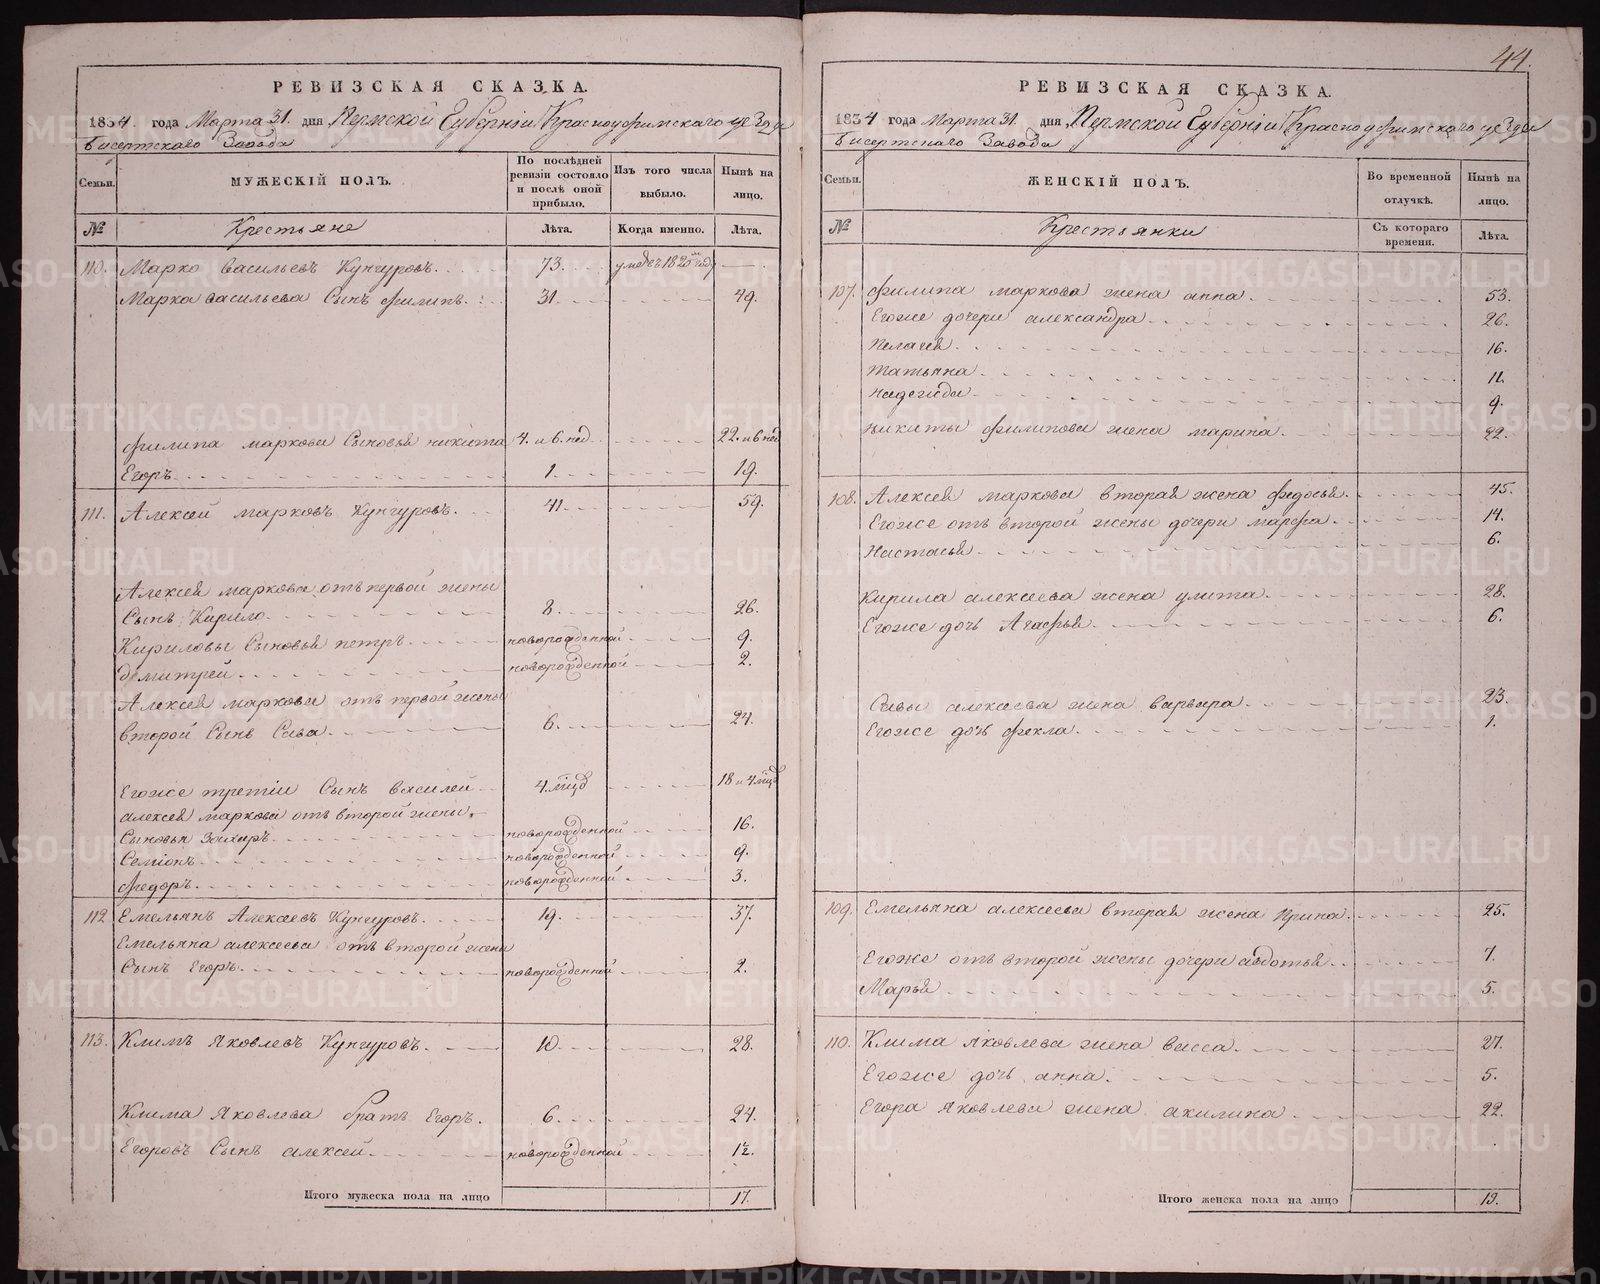 44.
РЕВИЗСКАЯ СКАЗКА.
1834 года Марта 31. дня Пермской Губернiи Красноуфимскаго уезда
Бисертскаго Завода
Семьи. МУЖЕСКІЙ ПОЛЪ. По послѣдней ревизіи состояло и послѣ оной прибыло. Изъ того числа выбыло. Нынѣ на лицо.
№ Крестьяне Лѣта. Когда именно. Лѣта.
110. Марко васильевъ Кунгуровъ. 73. умеръ 1820 году
Марка васильева Сынъ филипъ. 31. 49.
филипа маркова Сыновья никита 4. и 6. нед. 22. и 6 нед
Егоръ. 1. 19.
111. Алексей марковъ Кунгуровъ. 41. 59.
Алексея маркова отъ первой жены
Сынъ Кирило. 8. 26.
Кириловы Сыновья петръ. новорожденной 9.
дѣмитрей. новорожденной 2.
Алексея маркова отъ первой жены
второй Сынъ Сава. 6. 24.
Егоже третiи Сынъ василей 4. мiцд 18 и 4 мiцд
алексея маркова отъ второй жены
Сыновья Захаръ. новорожденной 16.
Семiонъ. новорожденной 9.
федоръ. новорожденной 3.
112 Емельянъ Алексеевъ Кунгуровъ. 19. 37.
Емельяна алексеева отъ второй жены
Сынъ Егоръ. новорожденной 2.
113. Климъ Яковлевъ Кунгуровъ. 10. 28.
Клима Яковлева братъ Егоръ. 6. 24.
Егоровъ Сынъ алексей. новорожденной 1½.
Итого мужеска пола на лицо 17.
РЕВИЗСКАЯ СКАЗКА.
1834 года Марта 31. дня Пермской Губернiи Красноуфимскаго уезда
Бисертскаго Завода
Семьи. ЖЕНСКІЙ ПОЛЪ. Во временной отлучкѣ. Нынѣ на лицо.
№ Крестьянки Съ котораго времени. Лѣта.
107. филипа маркова жена анна. 53.
Егоже дочери александра. 26.
Пелагея. 16.
татьяна. 11.
надежда. 9.
никиты филипова жена марина. 22.
108. Алексея маркова вторая жена федосья. 45.
Егоже отъ второй жены дочери марфа. 14.
Настасья. 6.
Кирила алексеева жена улита. 28.
Егоже дочь Агафья. 6.
Савы алексеева жена варвара. 23.
Егоже дочь фекла. 1.
109. Емельяна алексеева вторая жена Ирина. 25.
Егоже отъ второй жены дочери авдотья. 7.
Марья 5.
110. Клима Яковлева жена васса. 27.
Егоже дочь анна. 5.
Егора Яковлева жена акилина. 22.
Итого женска пола на лицо 19.
METRIKI.GASO-URAL.RU